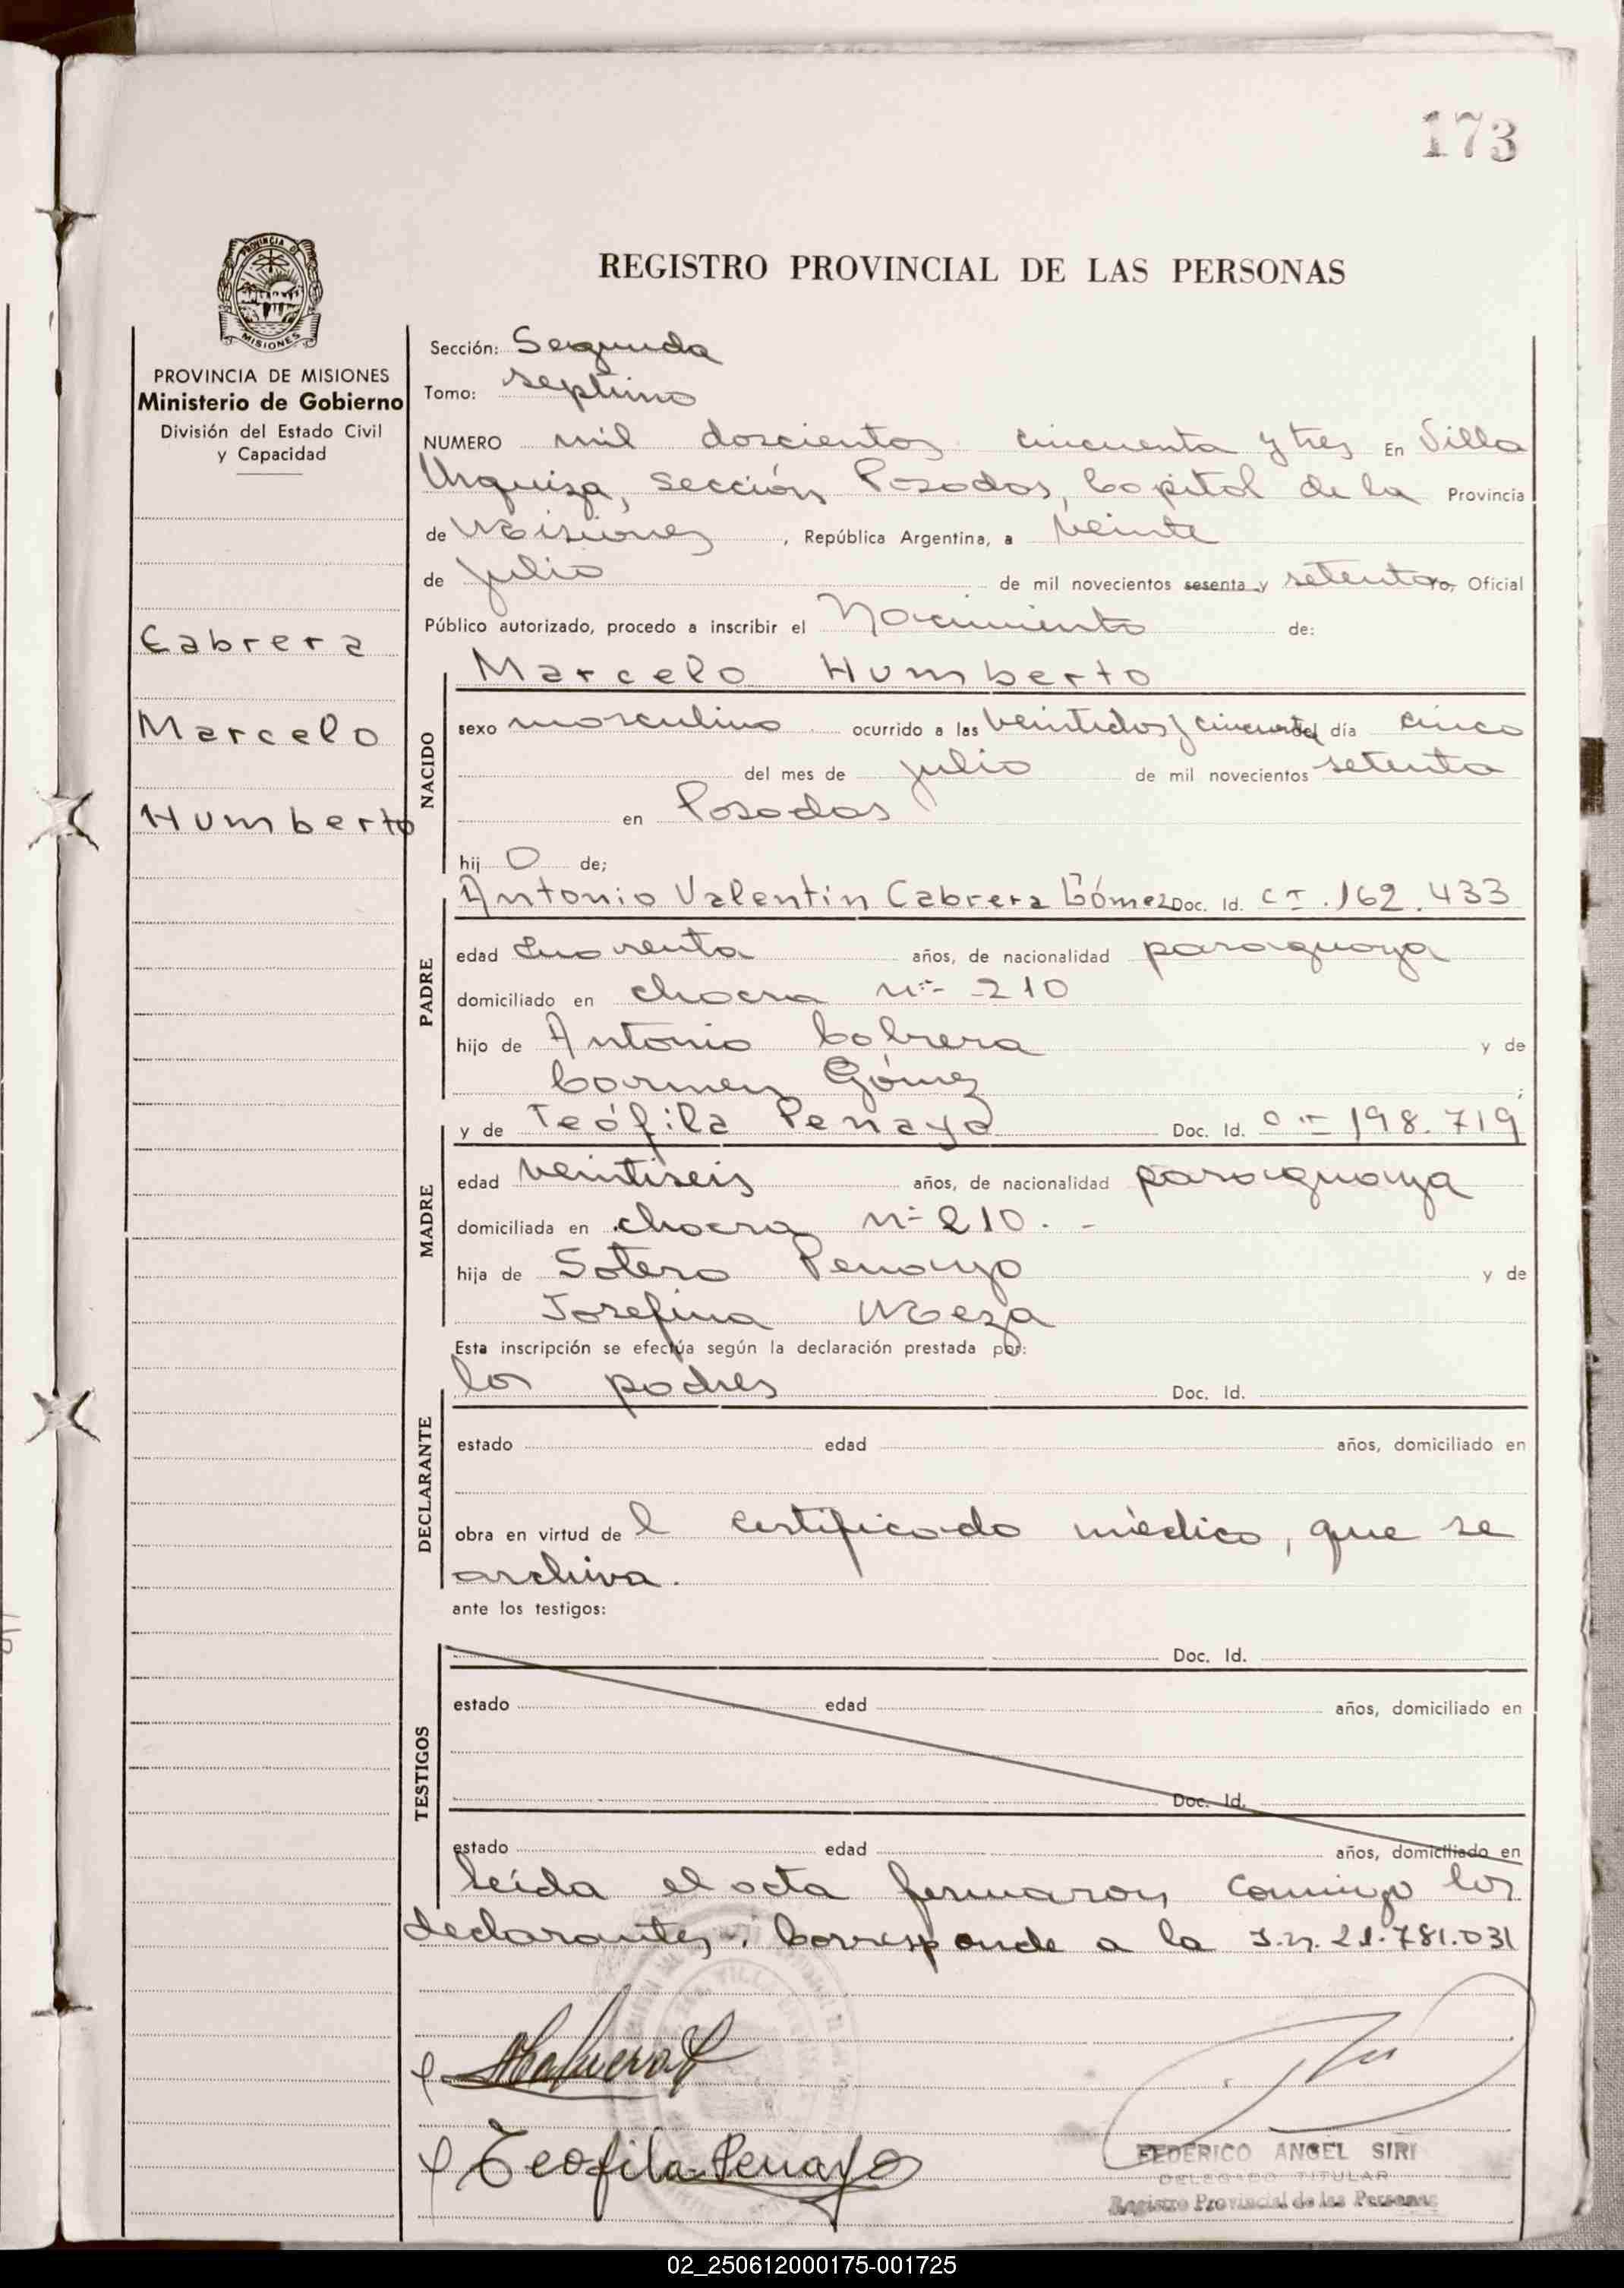 173
PROVINCIA DE MISIONES
REGISTRO PROVINCIAL DE LAS PERSONAS
PROVINCIA DE MISIONES
Ministerio de Gobierno
División del Estado Civil
y Capacidad
Cabrera
Marcelo
Humberto
Sección: Segunda
Tomo: septimo
NUMERO mil doscientos cincuenta y tres En Villa
Urquiza, Sección Posadas, Capital de la Provincia
de Misiones, República Argentina, a veinte
de julio de mil novecientos sesenta y setenta Yo, Oficial
Público autorizado, procedo a inscribir el Nacimiento de:
Marcelo Humberto
NACIDO
sexo masculino ocurrido a las veintidos y cincuenta del día cinco
del mes de julio de mil novecientos setenta
en Posadas
hij o de;
Antonio Valentín Cabrera Gómez Doc. Id. CI. 162.433
PADRE
edad cuarenta años, de nacionalidad paraguaya
domiciliado en chacra nº 210
hijo de Antonio Cabrera y de
Carmen Gómez ;
y de Teófila Penayo Doc. Id. CI 198.719
MADRE
edad veintiseis años, de nacionalidad paraguaya
domiciliada en chacra nº 210. -
hija de Sotero Penayo y de
Josefina Meza
Esta inscripción se efectúa según la declaración prestada por:
los padres Doc. Id.
DECLARANTE
estado edad años, domiciliado en
obra en virtud de l certificado médico, que se
archiva.
ante los testigos:
TESTIGOS
Doc. Id.
estado edad años, domiciliado en
Doc. Id.
estado edad años, domiciliado en
leída el acta firmaron conmigo los
declarantes. Corresponde a la I.n. 21.781.031
Teofila Penayo
FEDERICO ANGEL SIRI
DELEGADO TITULAR
Registro Provincial de las Personas
02_250612000175-001725